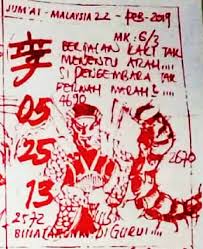 JUM'AT - MALAYSIA 22 - FEB - 2019
MK: 6/3
BERJALAN KAKI TAK
MENENTU ARAH!!!!
SI PENGEMBARA TAK
PERNAH MARAH!!
4690
05
25
13
2670
2572
DI GURUN!!!!